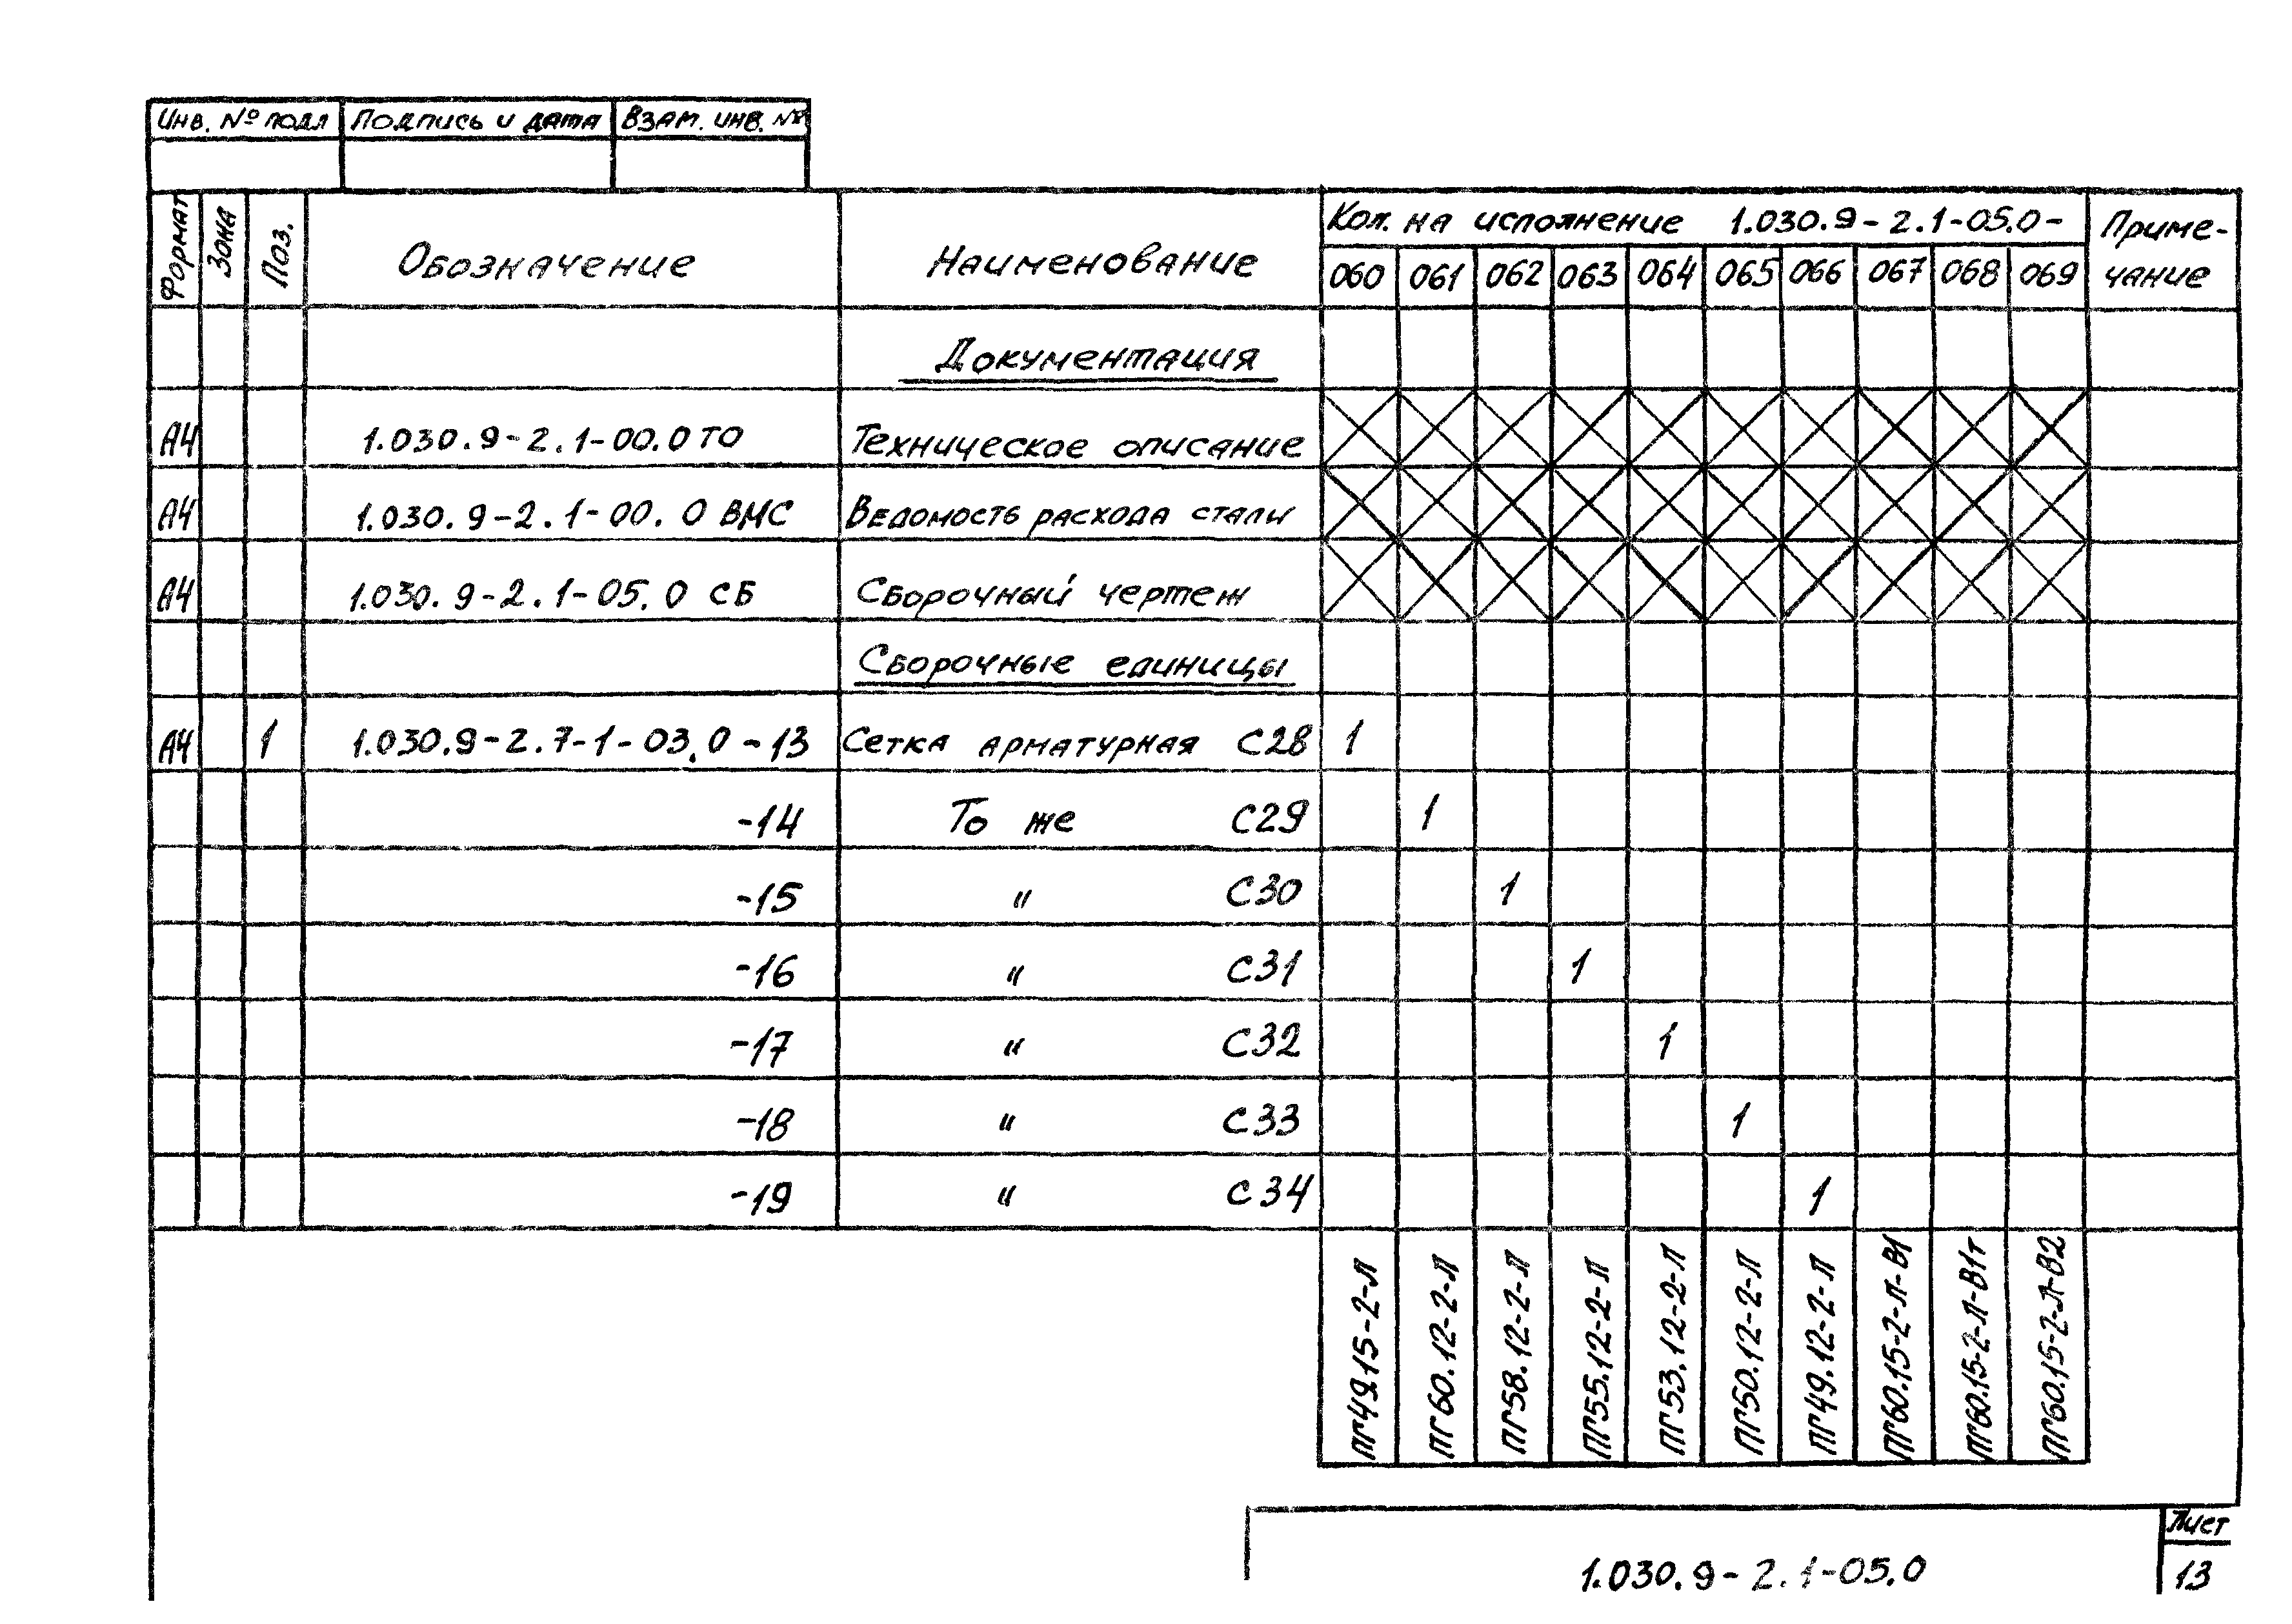 Инв. № подл Подпись и дата Взам. инв. №
Формат Зона Поз. Обозначение Наименование Кол. на исполнение 1.030.9-2.1-05.0- Приме-
060 061 062 063 064 065 066 067 068 069 чание
Документация
А4 1.030.9-2.1-00.0 ТО Техническое описание
А4 1.030.9-2.1-00.0 ВМС Ведомость расхода стали
А4 1.030.9-2.1-05.0 СБ Сборочный чертеж
Сборочные единицы
А4 1 1.030.9-2.7-1-03.0-13 Сетка арматурная С28 1
-14 То же С29 1
-15 " С30 1
-16 " С31 1
-17 " С32 1
-18 " С33 1
-19 " С34 1
ПГ49.15-2-Л
ПГ60.12-2-Л
ПГ58.12-2-Л
ПГ55.12-2-Л
ПГ53.12-2-Л
ПГ50.12-2-Л
ПГ49.12-2-Л
ПГ60.15-2-Л-В1
ПГ60.15-2-Л-В1т
ПГ60.15-2-Л-В2
1.030.9-2.1-05.0
Лист
13